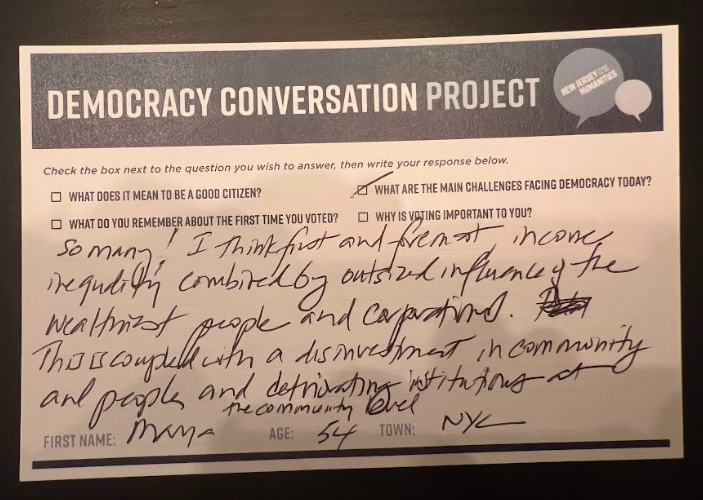 DEMOCRACY CONVERSATION PROJECT
NEW JERSEY
HUMANITIES
Check the box next to the question you wish to answer, then write your response below.
WHAT DOES IT MEAN TO BE A GOOD CITIZEN?
WHAT ARE THE MAIN CHALLENGES FACING DEMOCRACY TODAY?
WHAT DO YOU REMEMBER ABOUT THE FIRST TIME YOU VOTED?
WHY IS VOTING IMPORTANT TO YOU?
So many! I think first and foremost, income
inequality combined by outsized influence of the
wealthiest people and corporations.
This is coupled with a disinvestment in community
and people and institutions at
the community level
FIRST NAME: Marya AGE: 54 TOWN: NYC